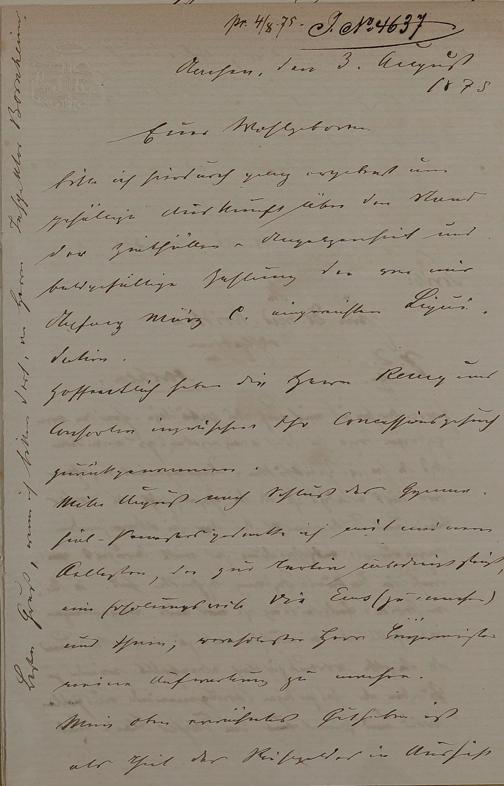 pr. 4/8. 75. J. No. 4637
Aachen, den 3. August
1875
Euer Wohlgeboren
bitte ich hierdurch ganz ergebenst um
gefällige Auskunft über den Stand
der Angelegenheit und
baldgefällige Zahlung der von mir
Anfang März c. eingereichten Liqui-
dation.
Hoffentlich haben die Herrn und
Consorten inzwischen ihr Concessionsgesuch
zurückgenommen.
Mitte August nach Schluß des Gymna-
sial-Semesters gedenke ich mit meinem
Aeltesten, der zur
eine Erholungsreise via Ems (zu machen)
und Ihnen, verehrtester Herr Bürgermeister
meine Aufwartung zu machen.
Mein oben erwähntes Guthaben ist
als Theil der Reisegelder in Aussicht
Besten Gruß, wenn ich bitten darf, an Herrn Inspektor Bornheim.